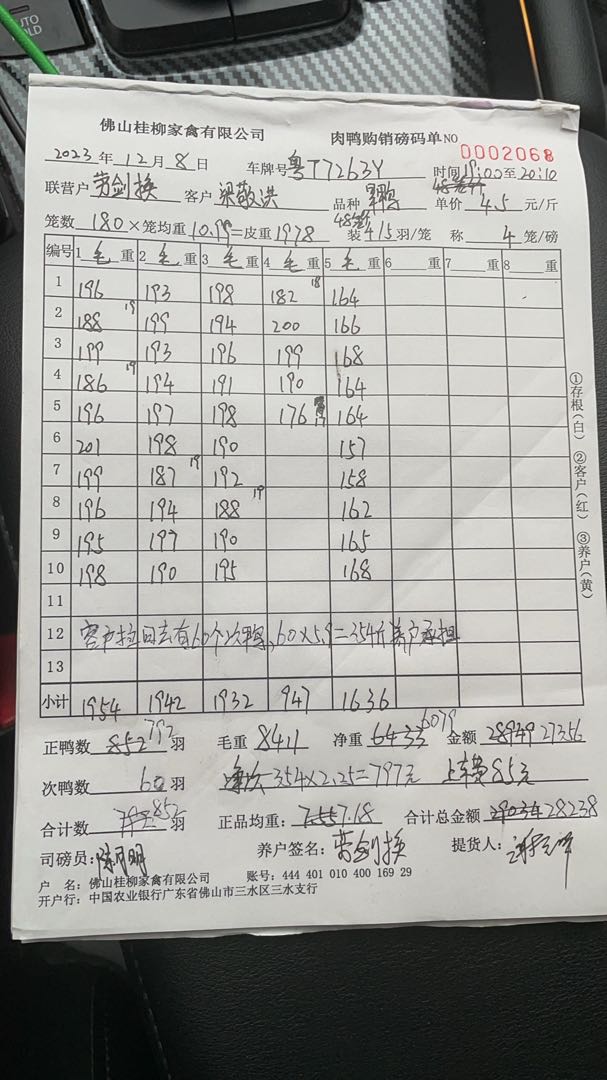 AUTO
HOLD
佛山桂柳家禽有限公司 肉鸭购销磅码单 NO 0002068
2023年12月8日 车牌号 粤T7263Y 时间19:00至20:10
联营户 劳剑换 客户 梁敬洪 品种 单价 4.5 元/斤
笼数 180×笼均重10.99=皮重1978 装4/5羽/笼 称 4 笼/磅
编号 1毛重 2毛重 3毛重 4毛重 5毛重 6 重 7 重 8 重
1 196 193 198 182 18 164
2 188 19 199 194 200 166
3 199 193 196 199 168
4 186 19 194 191 190 164
5 196 197 198 176 164
6 201 198 190 157
7 199 187 19 192 158
8 196 194 188 19 162
9 195 197 190 165
10 198 190 195 168
11
12 客户拉回去有60个次鸭,60×5.9=354斤养户承担
13
小计 1954 1942 1932 947 1636
正鸭数 852 792 羽 毛重 8411 净重 6433 6079 金额 28949 27356
次鸭数 60 羽 354×2.25=797元 上车费85元
合计数 852 羽 正品均重: 7.557.18 合计总金额 29034 28238
司磅员: 陈月明 养户签名: 劳剑换 提货人:
户 名: 佛山桂柳家禽有限公司 账号: 444 401 010 400 169 29
开户行: 中国农业银行广东省佛山市三水区三水支行
①存根(白) ②客户(红) ③养户(黄)